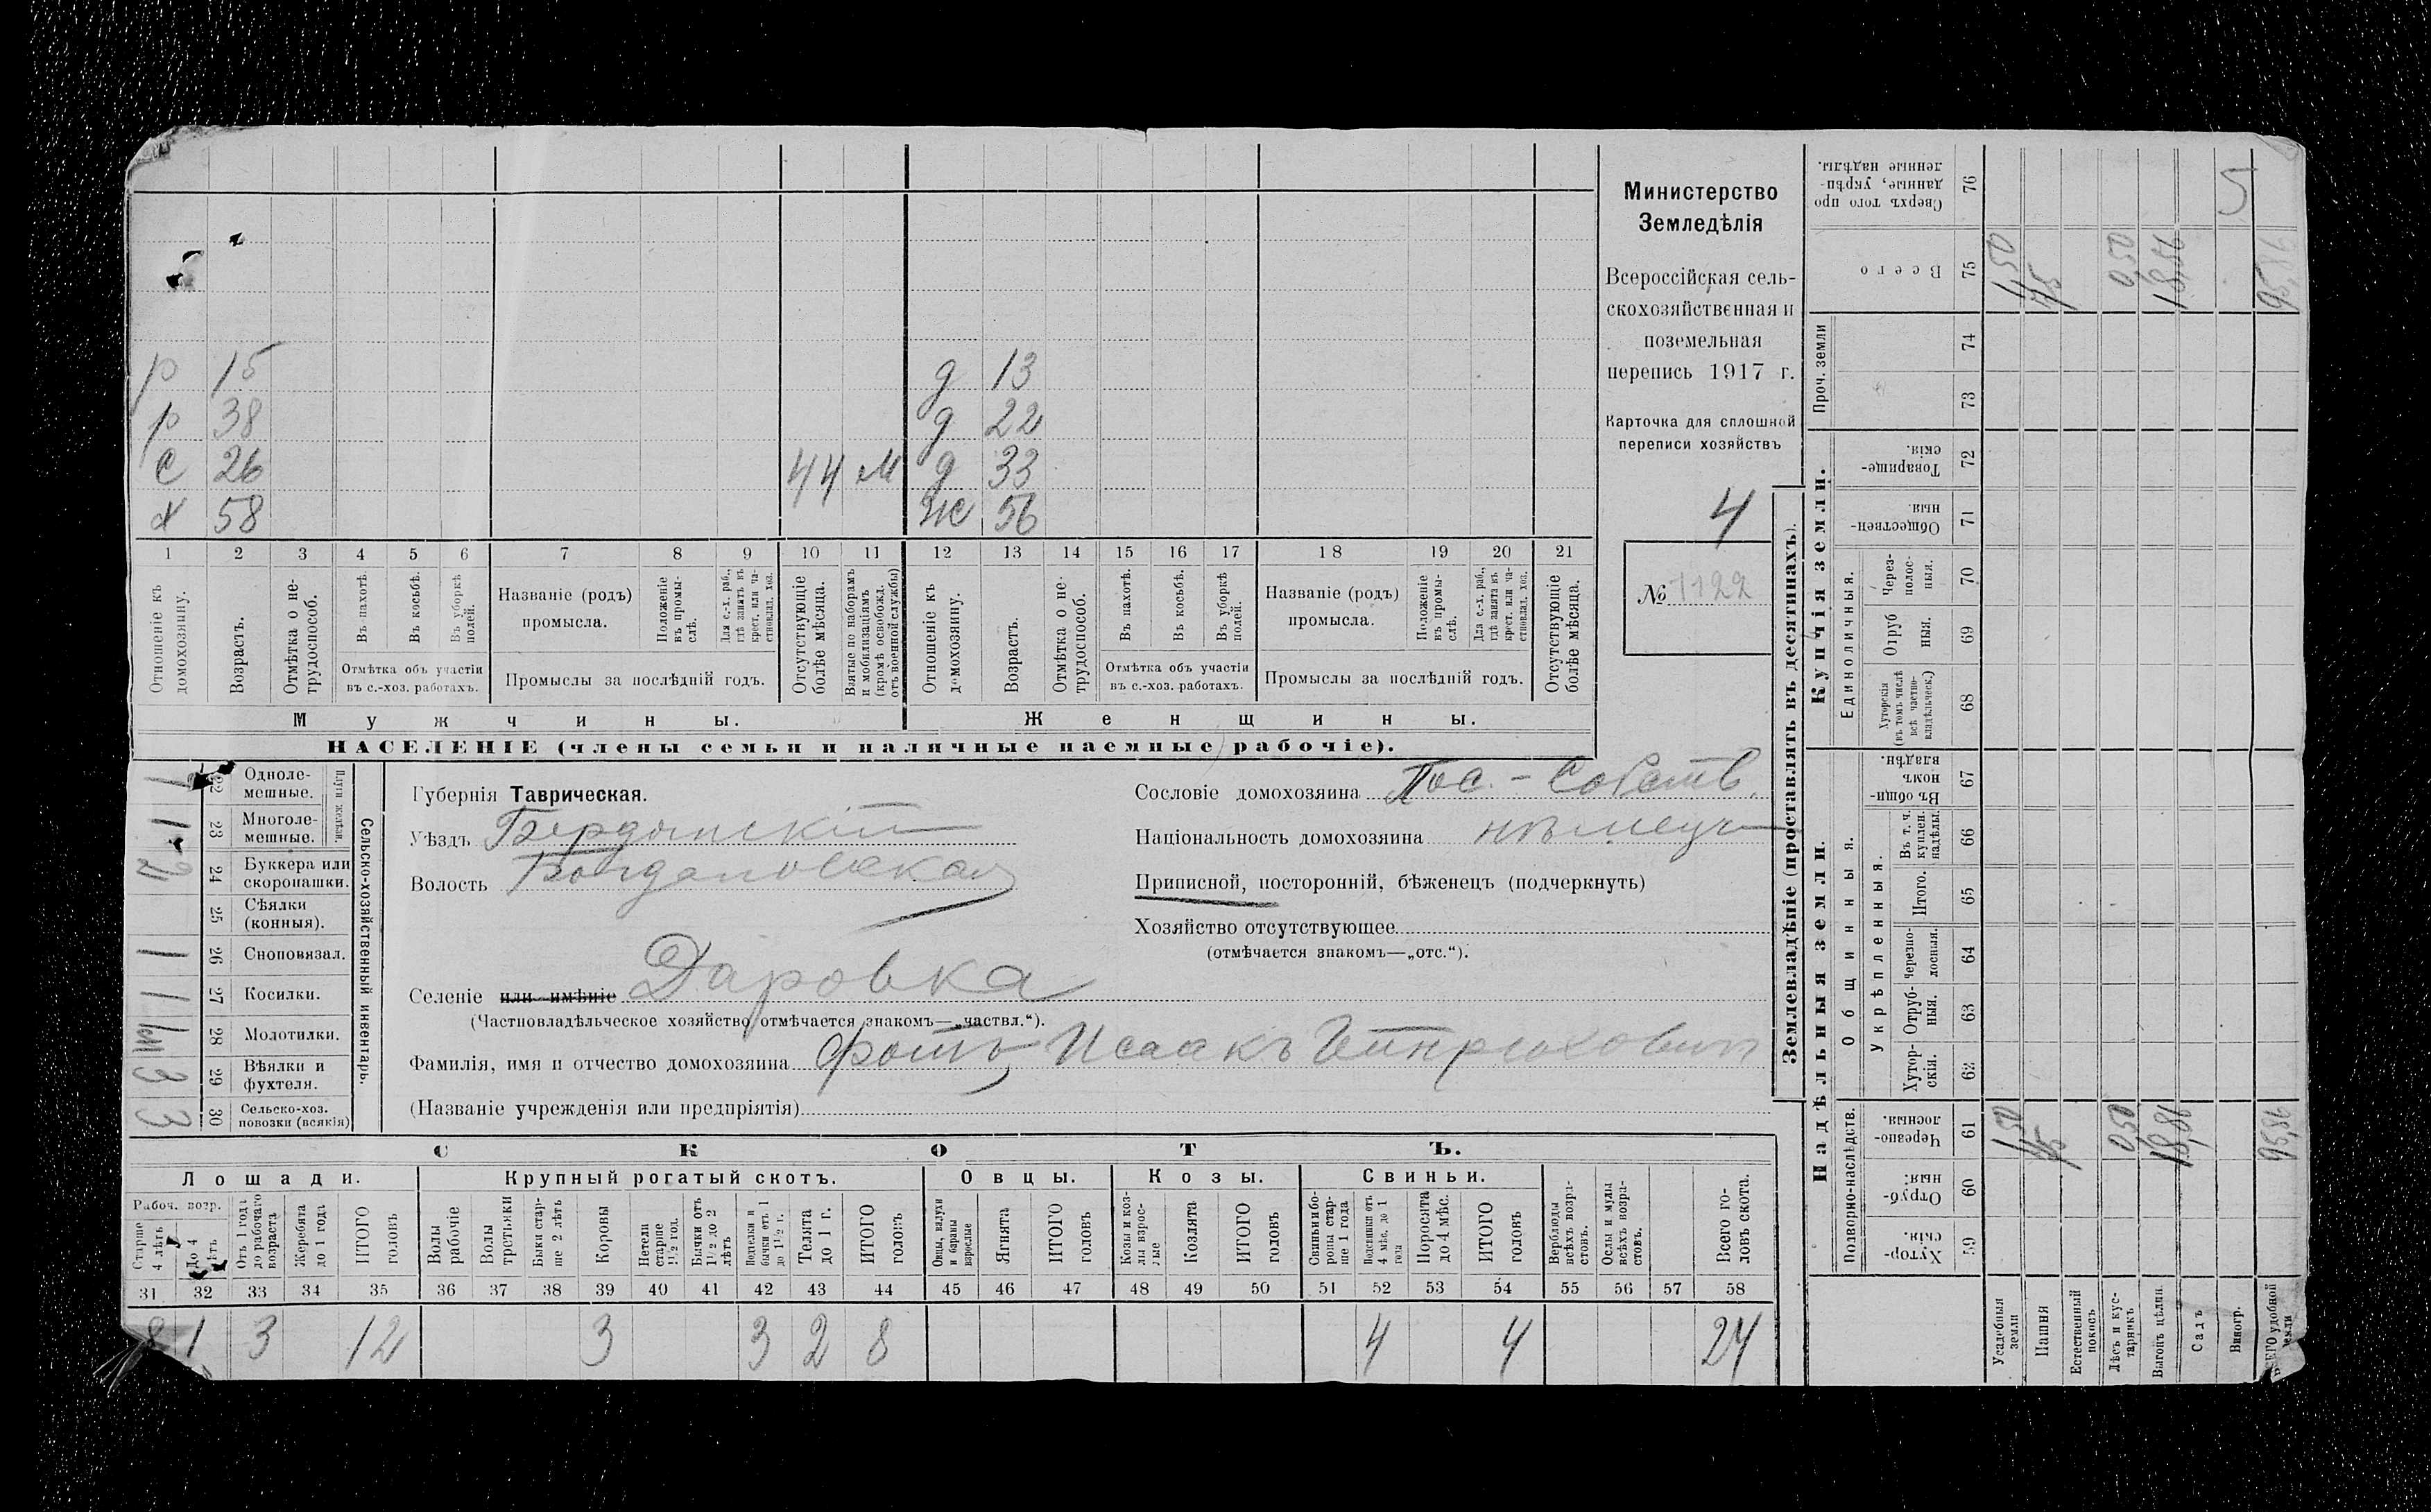 Министерство
Земледѣлія
Всероссійская сель-
скохозяйственная и
поземельная
перепись 1917 г.
Карточка для сплошной
переписи хозяйствъ
4
№ 1122
р 15 д 13
р 38 д 22
с 26 44 м д 33
х 58 Ж 56
1 2 3 4 5 6 7 8 9 10 11 12 13 14 15 16 17 18 19 20 21
Отношеніе къ домохозяину.
Возрастъ.
Отмѣтка о не-трудоспособ.
Въ пахотѣ.
Въ косьбѣ.
Въ уборкѣ полей.
Отмѣтка объ участіи
въ с.-хоз. работахъ.
Названіе (родъ)
промысла.
Положеніе въ промы-слѣ.
Для с.-х. раб., гдѣ занятъ въ крест. или ча-стновлад. хоз.
Промыслы за послѣдній годъ.
Отсутствующіе болѣе мѣсяца.
Взятые по наборамъ и мобилизаціямъ (кромѣ освобожд. отъ военной службы)
Отношеніе къ домохозяину.
Возрастъ.
Отмѣтка о не-трудоспособ.
Въ пахотѣ.
Въ косьбѣ.
Въ уборкѣ полей.
Отмѣтка объ участіи
въ с.-хоз. работахъ.
Названіе (родъ)
промысла.
Положеніе въ промы-слѣ.
Для с.-х. раб., гдѣ занята въ крест. или ча-стновлад. хоз.
Промыслы за послѣдній годъ.
Отсутствующіе болѣе мѣсяца.
Мужчины. Женщины.
НАСЕЛЕНІЕ (члены семьи и наличные наемные рабочіе).
Сельско-хозяйственный инвентарь.
1 22 Одноле-мешные.
1 23 Многоле-мешные.
2 24 Буккера или скоропашки.
25 Сѣялки (конныя).
1 26 Сноповязал.
1 27 Косилки.
28 Молотилки.
3 29 Вѣялки и фухтеля.
3 30 Сельско-хоз. повозки (всякія)
Губернія Таврическая.
Уѣздъ Бердянскій
Волость Богдановская
Селеніе или имѣніе Даровка
(Частновладѣльческое хозяйство отмѣчается знакомъ—„частвл.“).
Фамилія, имя и отчество домохозяина Фотъ Исаакъ Гейнриховичъ
(Названіе учрежденія или предпріятія)
Сословіе домохозяина Пос.-Собств.
Національность домохозяина нѣмецъ
Приписной, посторонній, бѣженецъ (подчеркнуть)
Хозяйство отсутствующее
(отмѣчается знакомъ—„отс.“).
СКОТЪ.
Лошади. Крупный рогатый скотъ. Овцы. Козы. Свиньи.
Рабоч. возр.
Старше 4 лѣтъ
До 4 лѣтъ
Отъ 1 года до рабочаго возраста
Жеребята до 1 года
ИТОГО головъ
Волы рабочіе
Волы третьяки
Быки стар-ше 2 лѣтъ
Коровы
Нетели старше 1½ год.
Бычки отъ 1½ до 2 лѣтъ
Подтелки и бычки отъ 1 до 1½ г.
Телята до 1 г.
ИТОГО головъ
Овцы, валухи и бараны взрослые
Ягнята
ИТОГО головъ
Козы и коз-лы взрос-лые
Козлята
ИТОГО головъ
Свиньи и бо-ровы стар-ше 1 года
Подсвинки отъ 4 мѣс. до 1 года
Поросята до 4 мѣс.
ИТОГО головъ
Верблюды всѣхъ возра-стовъ.
Ослы и мулы всѣхъ возра-стовъ.
Всего го-ловъ скота.
31 32 33 34 35 36 37 38 39 40 41 42 43 44 45 46 47 48 49 50 51 52 53 54 55 56 57 58
8 1 3 12 3 3 2 8 4 4 24
Землевладѣніе (проставлять въ десятинахъ).
Надѣльныя земли. Купчія земли. Проч. земли
Подворно-наслѣдств.
Общинныя.
Укрѣпленныя.
Единоличныя.
Хутор-скія. 59
Отруб-ныя. 60
Черезпо-лосныя. 61
Хутор-скія. 62
Отруб-ныя. 63
Черезпо-лосныя. 64
Итого. 65
Въ т. ч. куплен. надѣлы. 66
Въ общи-номъ владѣн. 67
Хуторскія (въ томъ числѣ всѣ частно-владѣльческ.) 68
Отруб ныя. 69
Через-полос-ныя. 70
Обществен-ныя. 71
Товарище-скія. 72
73
74
Всего 75
Сверхъ того про данные, укрѣп-ленные надѣлы. 76
Усадебныя земли 1,50 1,50
Пашня 75 75
Естественный покосъ
Лѣсъ и кус-тарникъ 0,50 0,50
Выгонъ цѣлин. 18,86 18,86
Садъ
Виногр.
ВСЕГО удобной земли 95,86 95,86
5